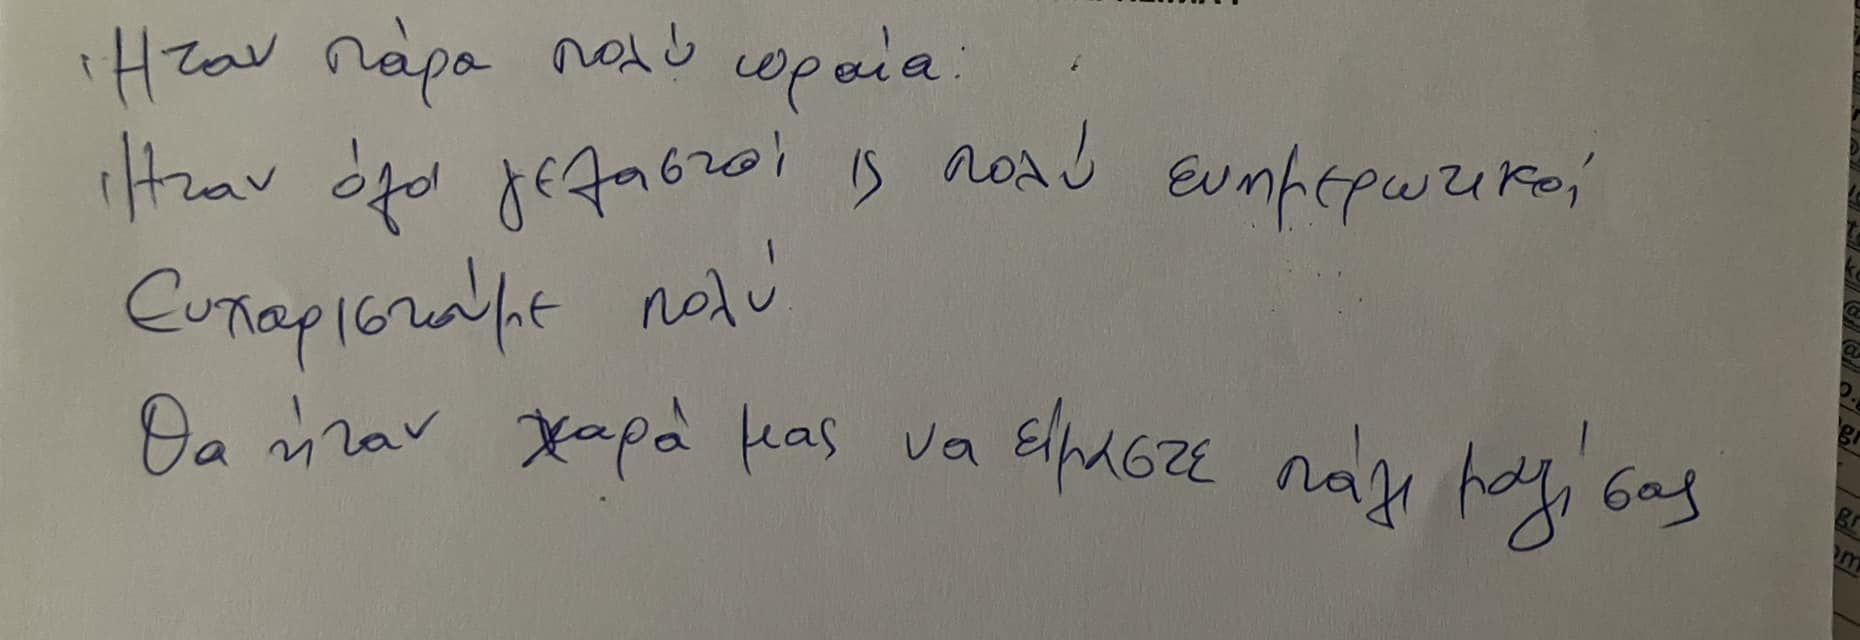 Ήταν πάρα πολύ ωραία.
Ήταν όλοι γελαστοί ϗ πολύ ενημερωτικοί
Ευχαριστούμε πολύ
Θα ήταν χαρά μας να είμαστε πάλι μαζί σας